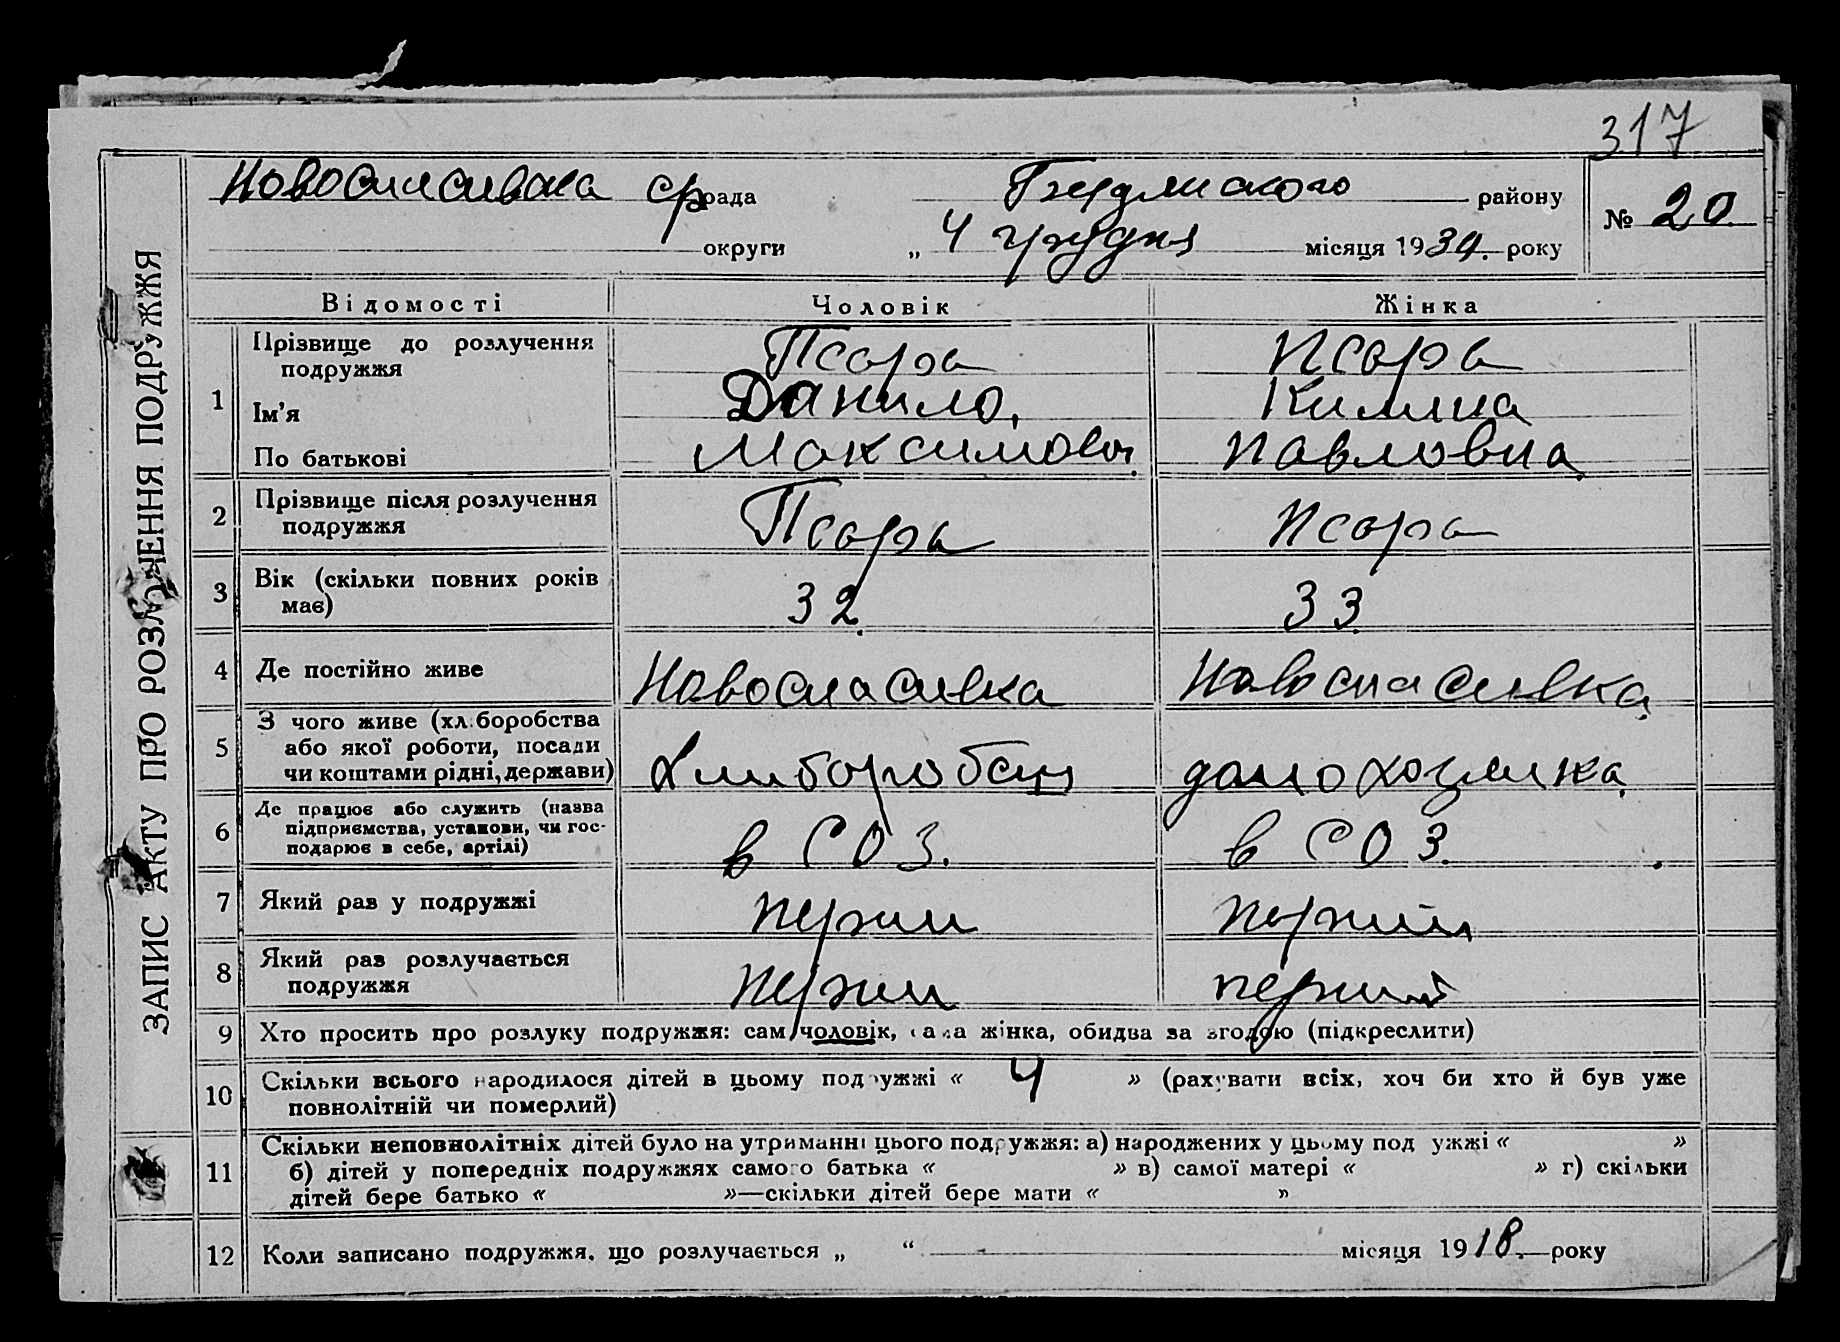 317
Новоспасивска с/рада Бердянского району
№ 20
округи „ 4 грудня місяця 1934. року
ЗАПИС АКТУ ПРО РОЗЛУЧЕННЯ ПОДРУЖЖЯ
Відомості Чоловік Жінка
1 Прізвище до розлучення подружжя Псара Псара
Ім'я Данило. Килина
По батькові Максимович. Павловна
2 Прізвище після розлучення подружжя Псара Псара
3 Вік (скільки повних років має) 32. 33.
4 Де постійно живе Новоспасивка Новоспасивка
5 З чого живе (хліборобства або якої роботи, посади чи коштами рідні, держави) хлиборобец домохозяика
6 Де працює або служить (назва підприємства, установи, чи господарює в себе, артілі) в СОЗ. в СОЗ.
7 Який раз у подружжі
8 Який раз розлучається подружжя
9 Хто просить про розлуку подружжя: сам чоловік, сама жінка, обидва за згодою (підкреслити)
10 Скільки всього народилося дітей в цьому подружжі « 4 » (рахувати всіх, хоч би хто й був уже
повнолітній чи померлий)
11 Скільки неповнолітніх дітей було на утриманні цього подружжя: а) народжених у цьому подружжі « »
б) дітей у попередніх подружжях самого батька « » в) самої матері « » г) скільки
дітей бере батько « »—скільки дітей бере мати « »
12 Коли записано подружжя, що розлучається „ “ місяця 1918. року